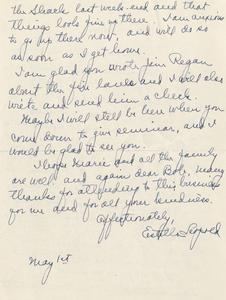 the Shack last week-end and that
things look fine up there. I am anxious
to go up there now, and will do so
as soon as I get home.
I am glad you wrote Jim Regan
about the and I will also
write and send him a check.
Maybe I will still be here when you
come down to give seminar, and I
would be glad to see you.
I hope Marie and all the family
are well and again dear Bob, many
thanks for attending to this business
for me and for all your kindness.
Affectionately,
Estella Leopold
May 1st